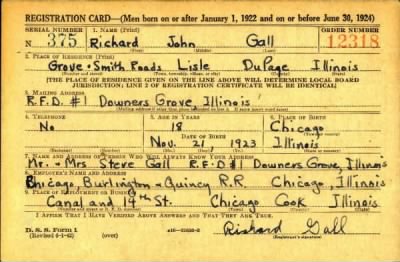 REGISTRATION CARD—(Men born on or after January 1, 1922 and on or before June 30, 1924)
SERIAL NUMBER 1. NAME (Print) ORDER NUMBER
N 375 Richard John Gall 12318
(First) (Middle) (Last)
2. PLACE OF RESIDENCE (Print)
Grove + Smith Roads Lisle DuPage Illinois
(Number and street) (Town, township, village, or city) (County) (State)
[THE PLACE OF RESIDENCE GIVEN ON THE LINE ABOVE WILL DETERMINE LOCAL BOARD
JURISDICTION; LINE 2 OF REGISTRATION CERTIFICATE WILL BE IDENTICAL]
3. MAILING ADDRESS
R.F.D. #1 Downers Grove, Illinois
4. TELEPHONE 5. AGE IN YEARS 6. PLACE OF BIRTH
No 18 Chicago
DATE OF BIRTH
Nov. 21, 1923 Illinois
7. NAME AND ADDRESS OF PERSON WHO WILL ALWAYS KNOW YOUR ADDRESS
Mr. + Mrs Steve Gall R.F.D #1 Downers Grove, Illinois
8. EMPLOYER'S NAME AND ADDRESS
Chicago, Burlington + Quincy R.R. Chicago, Illinois
9. PLACE OF EMPLOYMENT OR BUSINESS
Canal and 14th St. Chicago Cook Illinois
I AFFIRM THAT I HAVE VERIFIED ABOVE ANSWERS AND THAT THEY ARE TRUE.
D. S. S. Form 1
(Revised 6-1-42) (over) Richard Gall
(Registrant's signature)